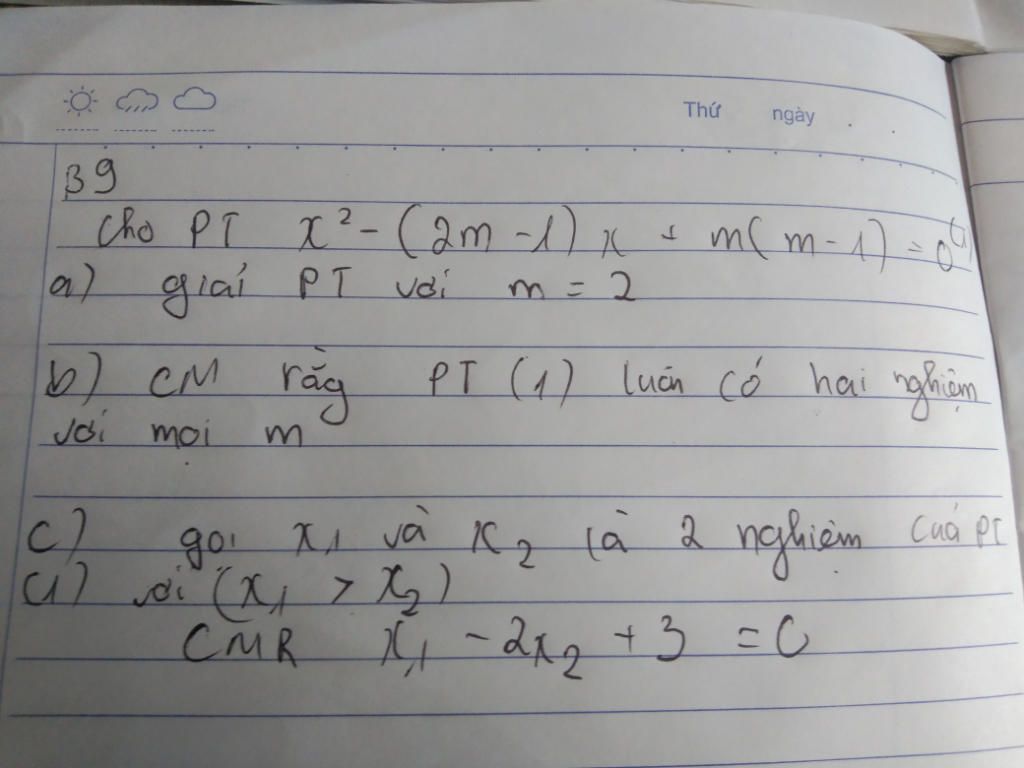 Thứ ngày
B9
Cho PT x² - (2m - 1) x + m(m - 1) = 0 (1)
a) giải PT với m = 2
b) CM rằg PT (1) luôn có hai nghiệm
với mọi m
c) gọi x₁ và x₂ là 2 nghiệm của PT
(1) với (x₁ > x₂)
CMR x₁ - 2x₂ + 3 = 0